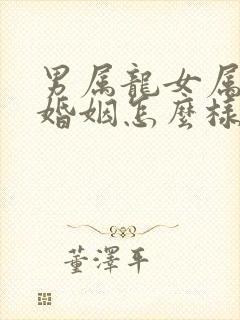 男属龍女属
婚姻怎麼樣
董澤平